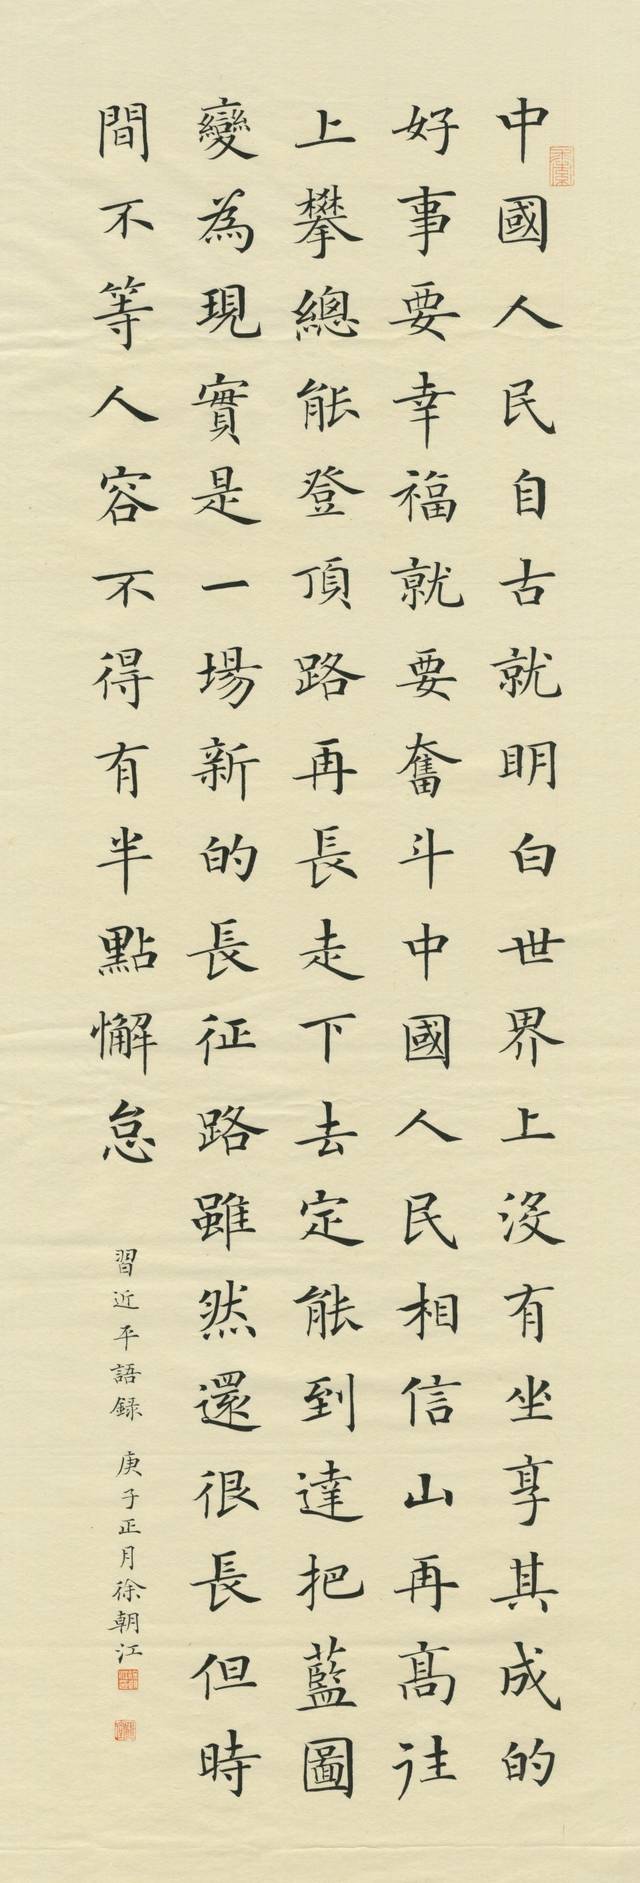 中國人民自古就明白世界上没有坐享其成的
好事要幸福就要奮斗中國人民相信山再高往
上攀總能登頂路再長走下去定能到達把藍圖
變為現實是一場新的長征路雖然還很長但時
間不等人容不得有半點懈怠
習近平語録 庚子正月徐朝江